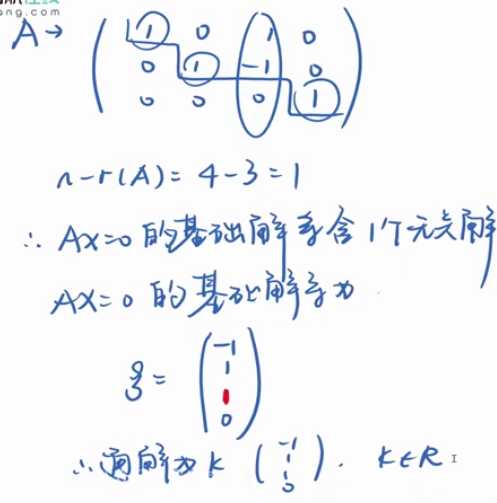 ng.com
A → ( 1 0 1 0
0 1 -1 0
0 0 0 1 )
n-r(A)=4-3=1
∴ AX=0 的基础解系含1个无关解
AX=0 的基础解系为
ξ = ( -1
1
1
0 )
∴通解为 k ( -1
1
1
0 ). k∈R